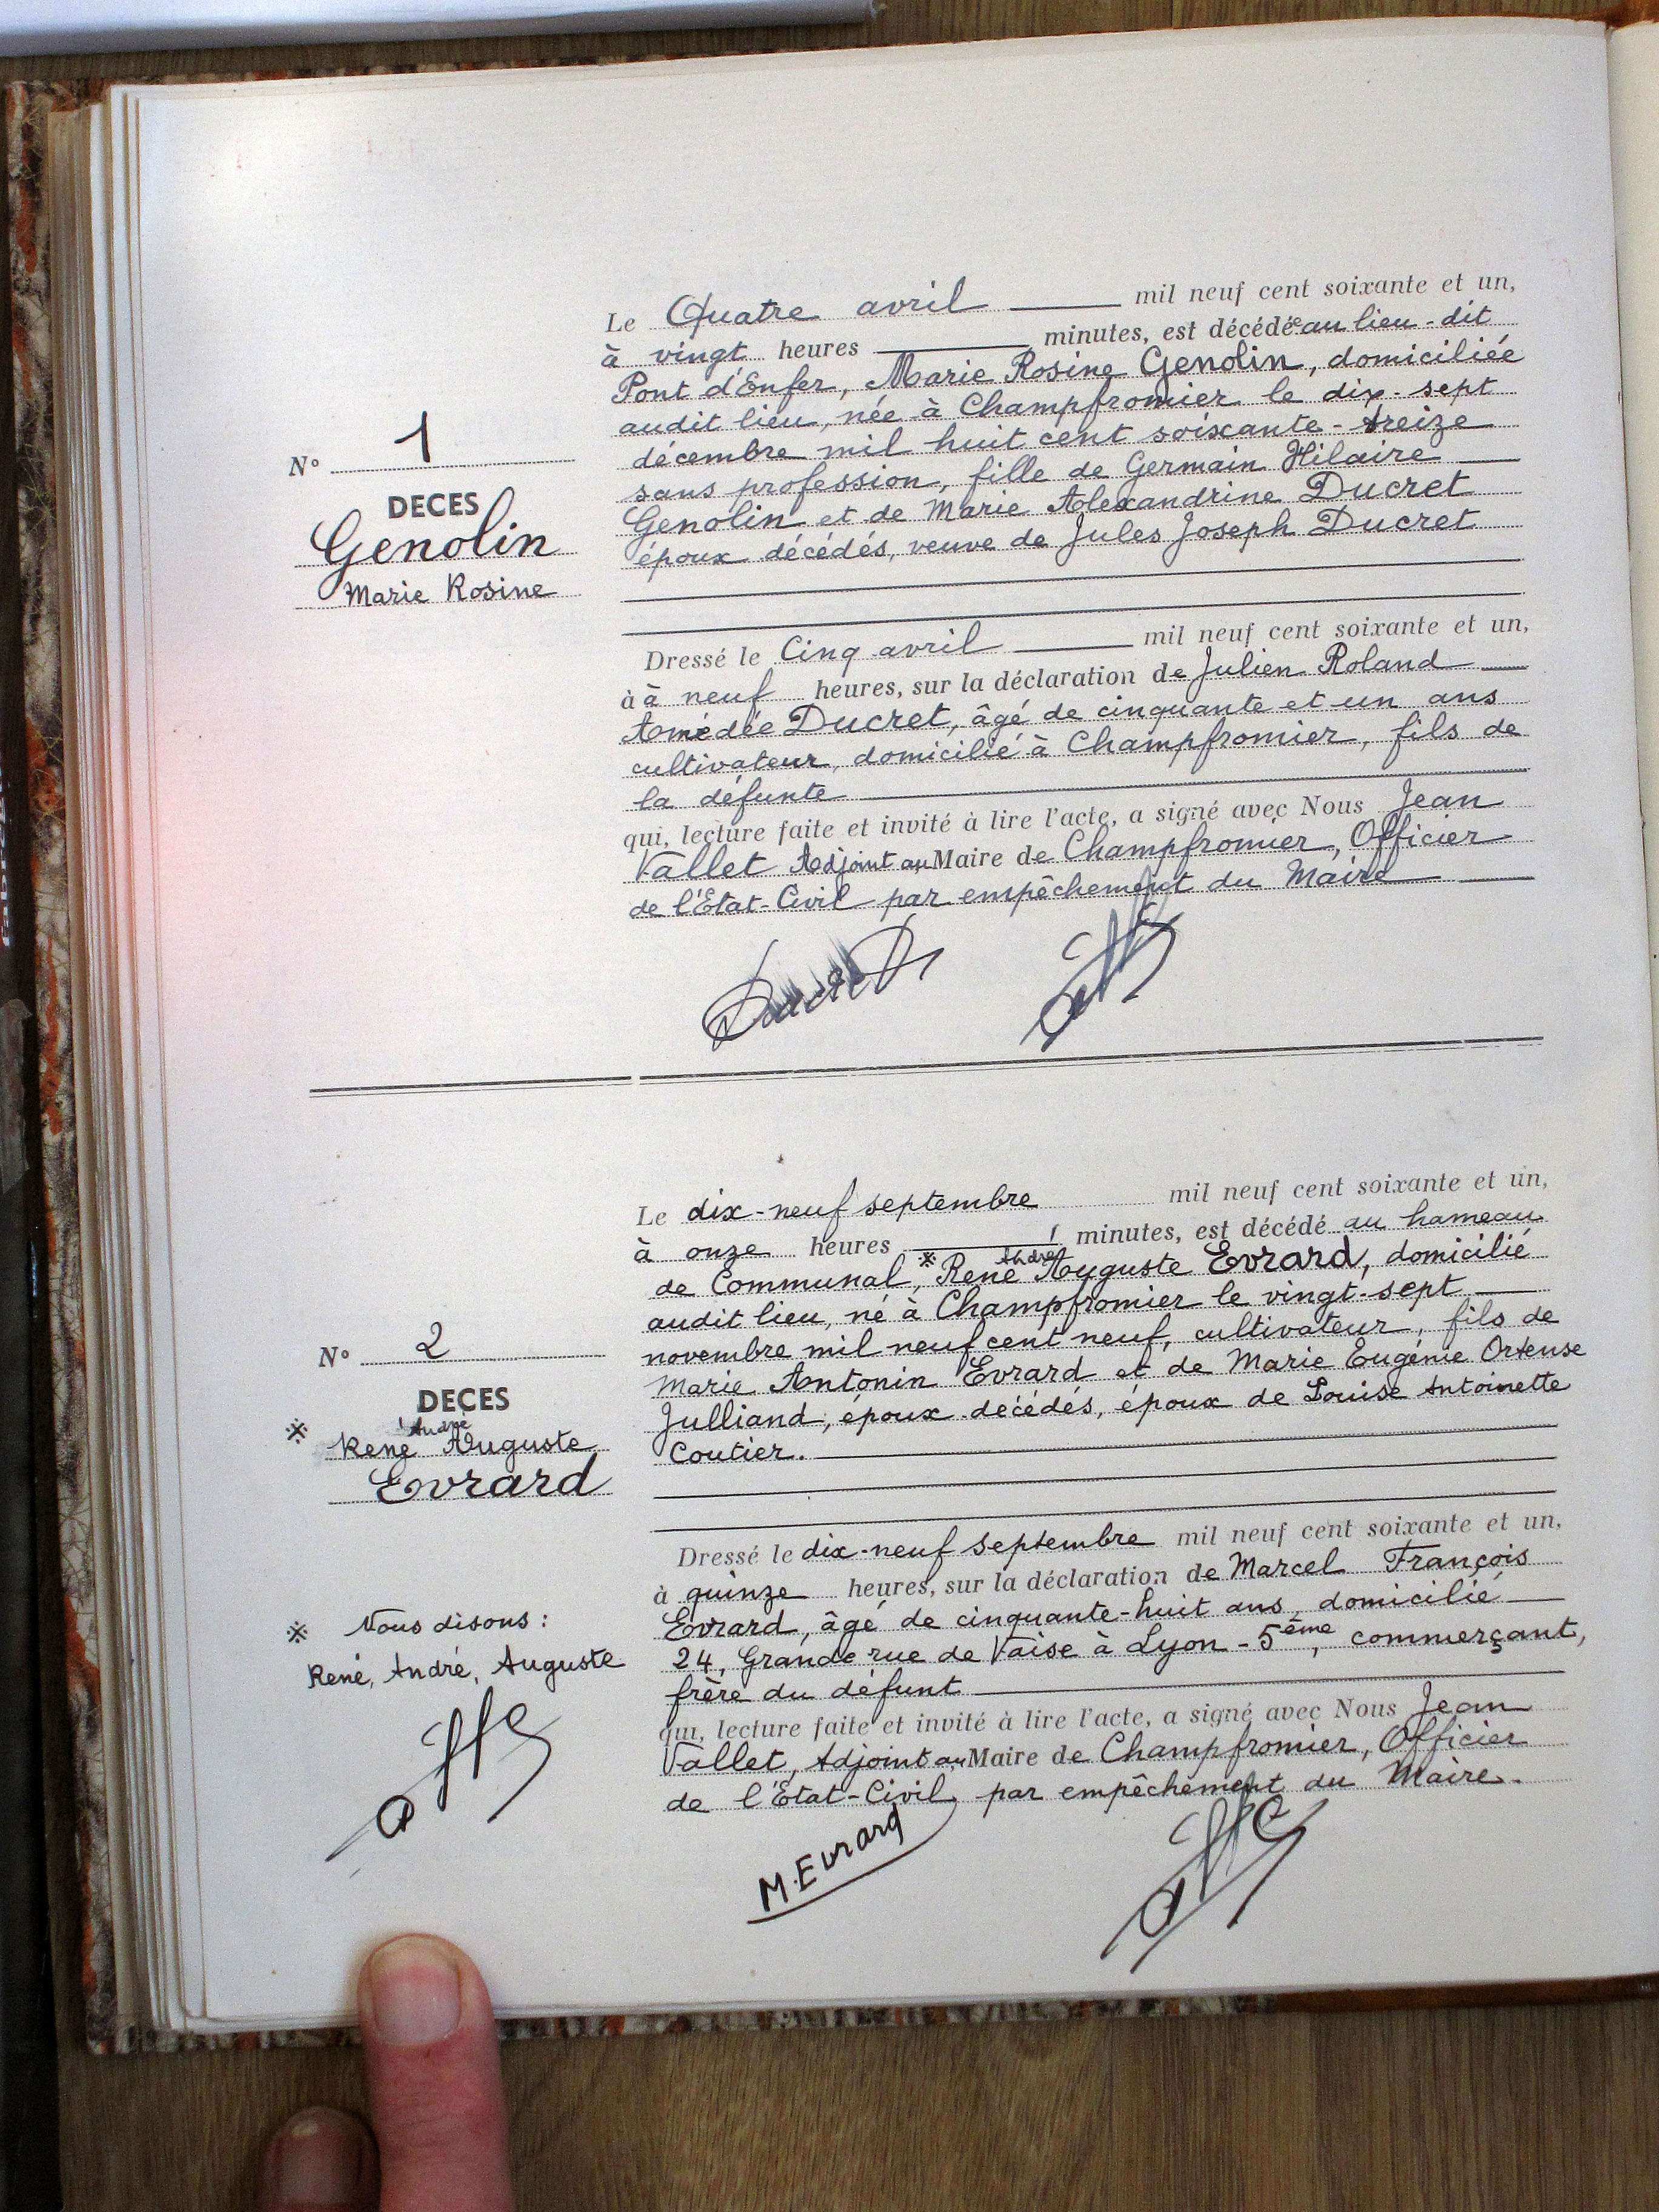 N° 1
DECES
Genolin
Marie Rosine
Le Quatre avril mil neuf cent soixante et un,
à vingt heures minutes, est décédée au lieu-dit
Pont d'Enfer, Marie Rosine Genolin, domiciliée
audit lieu, née à Champfromier le dix-sept
décembre mil huit cent soixante-treize
sans profession, fille de Germain Hilaire
Genolin et de Marie Alexandrine Ducret
époux décédés, veuve de Jules Joseph Ducret
Dressé le Cinq avril mil neuf cent soixante et un,
à à neuf heures, sur la déclaration de Julien Roland
Amédée Ducret, âgé de cinquante et un ans
cultivateur, domicilié à Champfromier, fils de
la défunte
qui, lecture faite et invité à lire l'acte, a signé avec Nous Jean
Vallet Adjoint au Maire de Champfromier, Officier
de l'Etat-Civil par empêchement du Maire
Ducret
N° 2
DECES
※ André
René Auguste
Evrard
※ Nous disons :
René, André, Auguste
Le dix-neuf septembre mil neuf cent soixante et un,
à onze heures minutes, est décédé au hameau
de Communal, ※ René André Auguste Evrard, domicilié
audit lieu, né à Champfromier le vingt-sept
novembre mil neuf cent neuf, cultivateur, fils de
Marie Antonin Evrard et de Marie Eugénie Ortense
Julliand, époux décédés, époux de Louise Antoinette
Coutier.
Dressé le dix-neuf septembre mil neuf cent soixante et un,
à quinze heures, sur la déclaration de Marcel François
Evrard, âgé de cinquante-huit ans, domicilié
24, Grande rue de Vaise à Lyon - 5ème, commerçant,
frère du défunt
qui, lecture faite et invité à lire l'acte, a signé avec Nous Jean
Vallet, Adjoint au Maire de Champfromier, Officier
de l'Etat-Civil, par empêchement du Maire.
M. Evrard